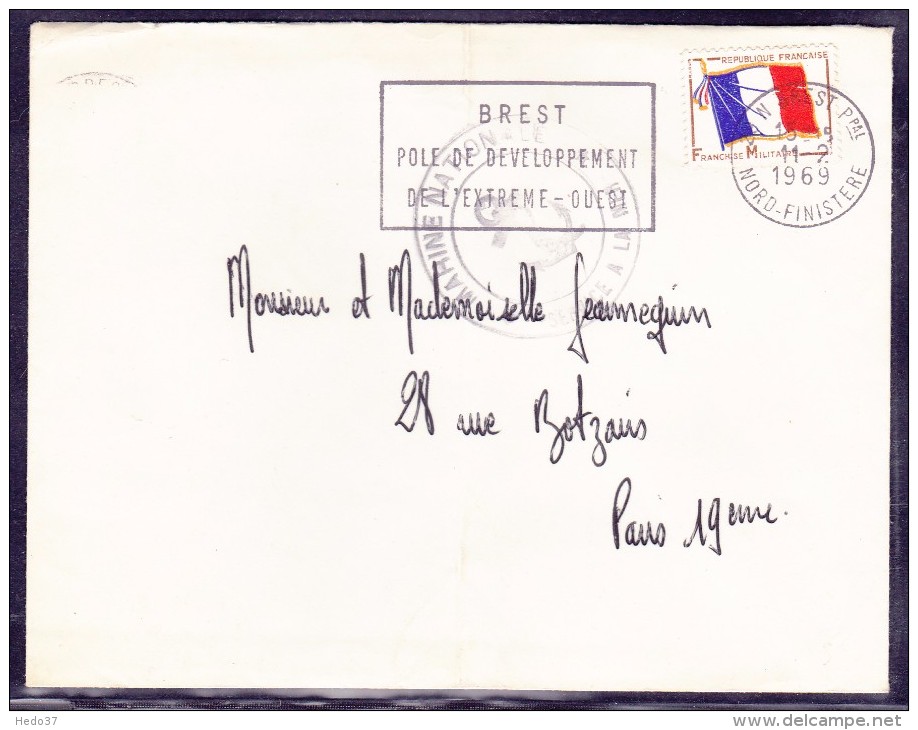 REPUBLIQUE FRANCAISE
FRANCHISE MILITAIRE
BREST PPAL
11-2
1969
NORD-FINISTERE
BREST
POLE DE DEVELOPPEMENT
DE L'EXTREME-OUEST
MARINE NATIONALE
SERVICE A LA MER
Monsieur et Mademoiselle Jeannequin
28 rue Botzaris
Paris 19eme.
Hedo37
delcampe.net